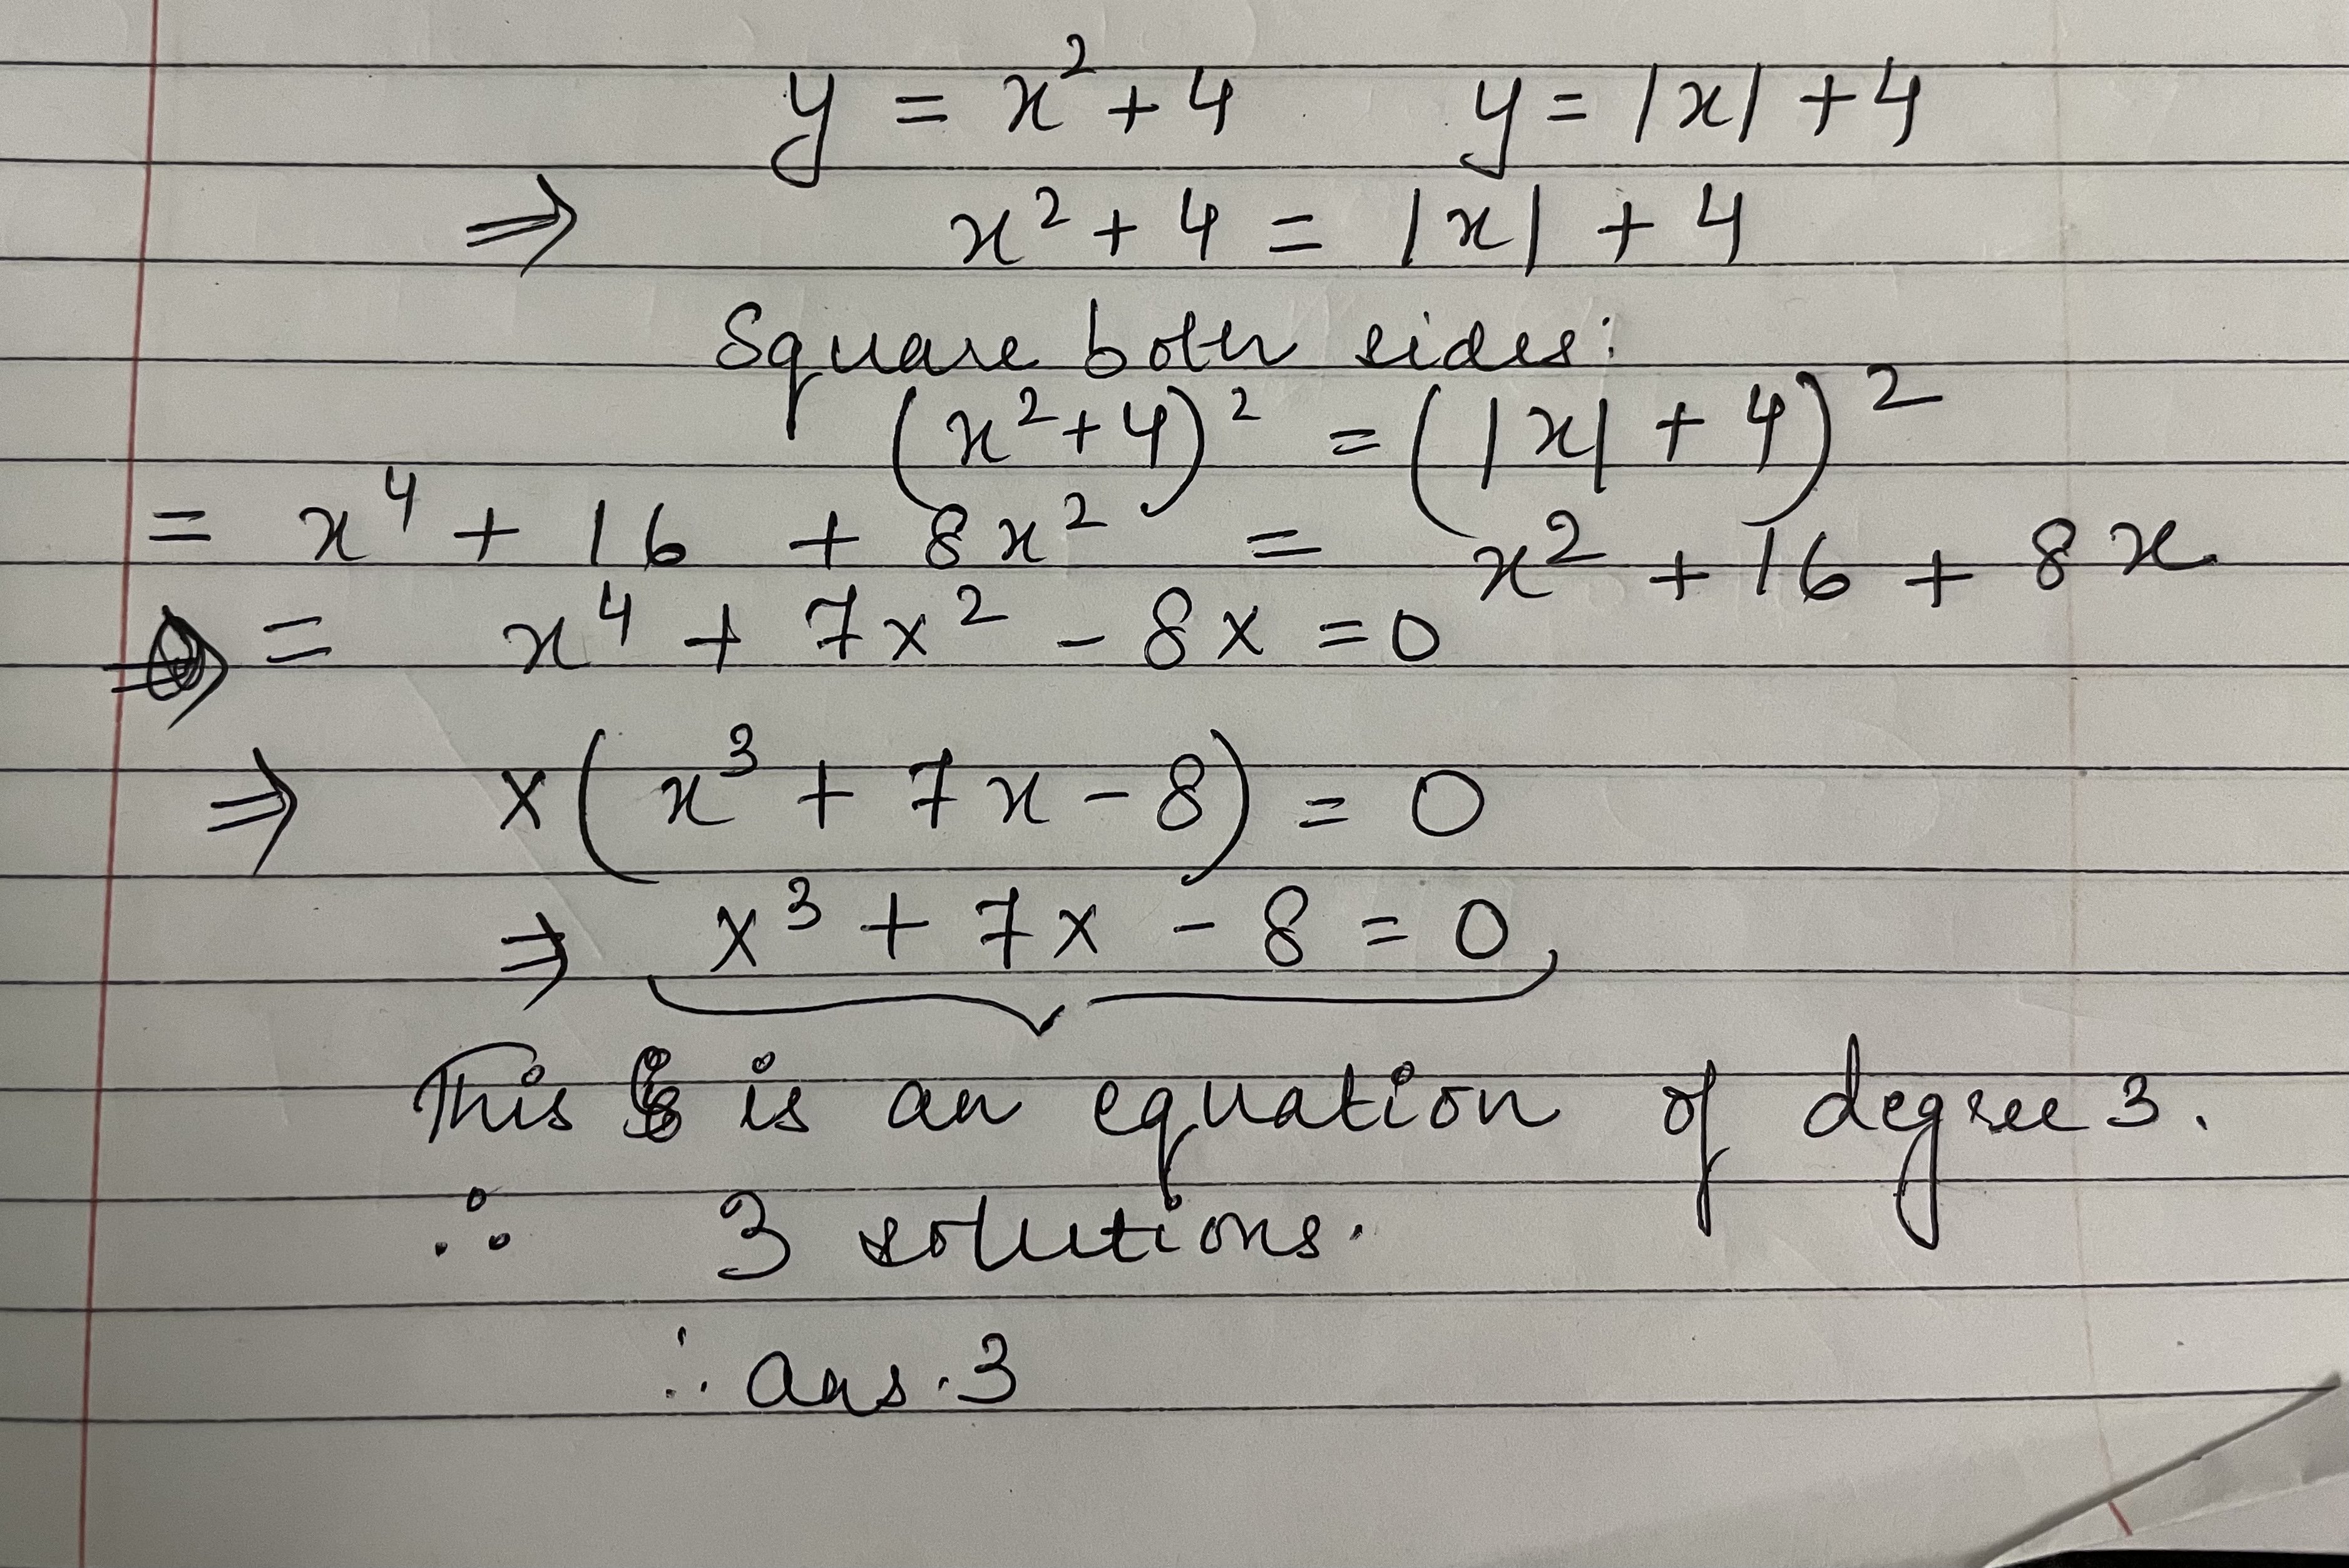 y = x² + 4 y = |x| + 4
⇒ x² + 4 = |x| + 4
Square both sides:
(x² + 4)² = (|x| + 4)²
= x⁴ + 16 + 8x² = x² + 16 + 8x
⇒ = x⁴ + 7x² - 8x = 0
⇒ x(x³ + 7x - 8) = 0
⇒ x³ + 7x - 8 = 0
This is an equation of degree 3.
∴ 3 solutions.
∴ ans. 3